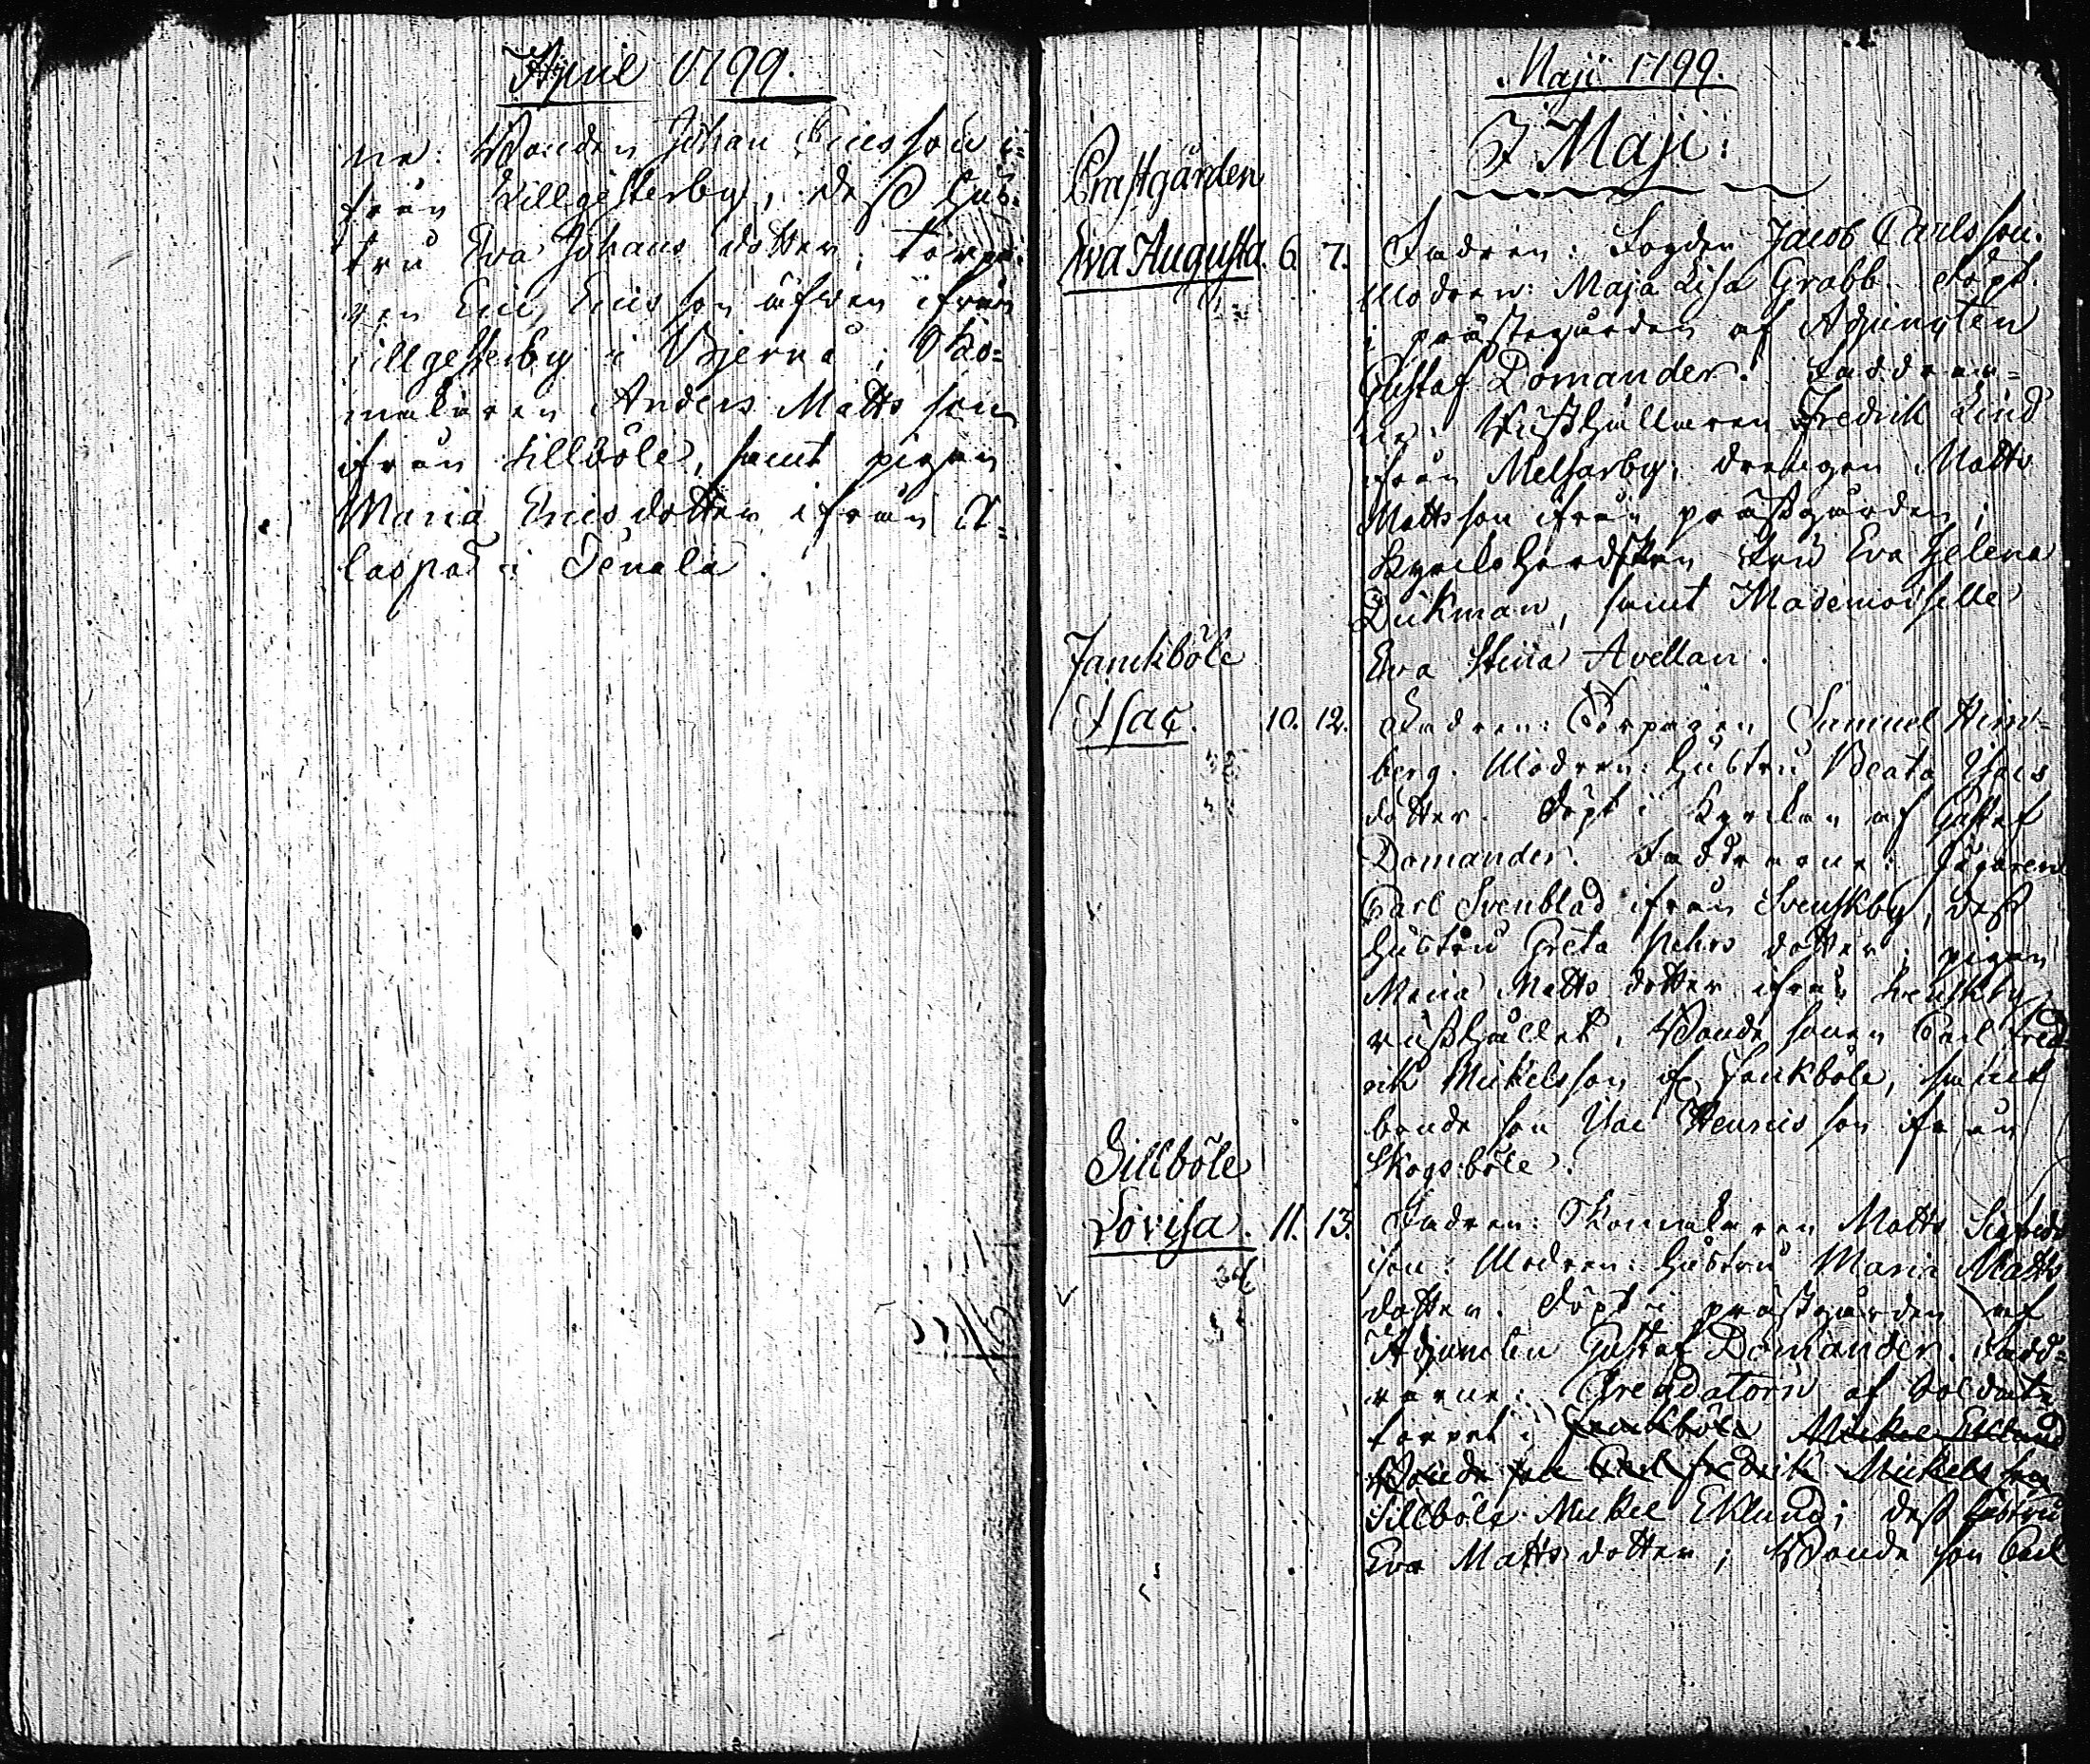 April 1799.
ne: Bonden Johan Ericsson i=
från Lillgesterby, dess hus=
tru Eva Johans dotter; torpa=
ren Eric Ericsson äfven ifrån
Lillgesterby i Bjerno; Sko=
makaren Anders Matts son
ifrån Sillböle, samt pigan
Maria Erics dotter ifrån
laspå i Tenala.
Maji 1799.
I Maji:
Prästgården
Eva Augusta. 6. 7. Fadren: Fogden Jacob Carlsson.
Modren: Maja Lisa Grabb. döpt.
i prästegården af Adjuncten
Gustaf Domander. Faddrar=
ne: Rusthållaren Fredrik Lind
ifrån Melsarby, drengen Matts
Mattsson ifrån prästgården;
Kyrkoherdskan Fru Eva Helena
Dickman, samt Mademoiselle
Eva Stina Avellan.
Janckböle
Isac. 10. 12. Fadren: Torparen Samuel
berg. Modren: hustru Beata
dotter. döpt i Kyrckan af Gustaf
Domander. Faddrarne: Jägaren
Carl Svenblad ifrån Svenskby, dess
hustru Greta Pehrs dotter; pigan
Maria Matts dotter ifrån Svenskby
rusthållet, Bonde sonen Carl Fred
rik Mickelsson if. Jankböle, samt
bonde son Isac Henrics son ifrån
Skogsböle.
Sillböle
Lovisa. 11. 13. Fadren: Skomakaren Matts Sigfrids
son: Modren: hustru Maria Matts
dotter. döpt i prästgården af
Adjuncten Gustaf Domander. Fadd=
rarne: af Soldate
torpet i Janckböle Mickel Eklund
Bonde son Carl Fredrik Mickels son
Sillböle Mickel Eklund; dess hustru
Eva Matts dotter; Bonde son Carl